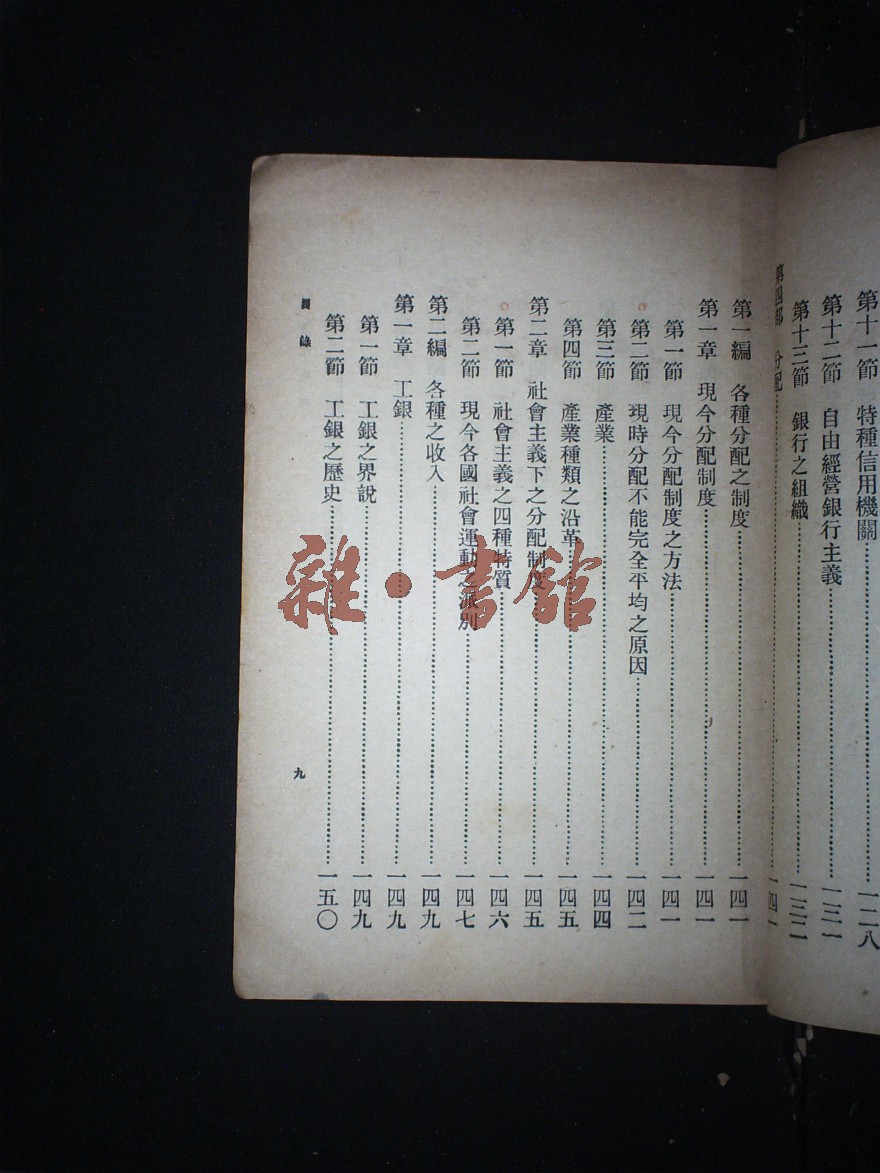 第十一節　特種信用機關……一二八
第十二節　自由經營銀行主義……一三一
第十三節　銀行之組織……一三二
第四部　分配……一四一
第一編　各種分配之制度……一四一
第一章　現今分配制度……一四一
第一節　現今分配制度之方法……一四一
第二節　現時分配不能完全平均之原因……一四二
第三節　產業……一四四
第四節　產業種類之沿革……一四五
第二章　社會主義下之分配制度……一四五
第一節　社會主義之四種特質……一四六
第二節　現今各國社會運動之派別……一四七
第二編　各種之收入……一四九
第一章　工銀……一四九
第一節　工銀之界說……一四九
第二節　工銀之歷史……一五〇
目錄
九
雜·書館